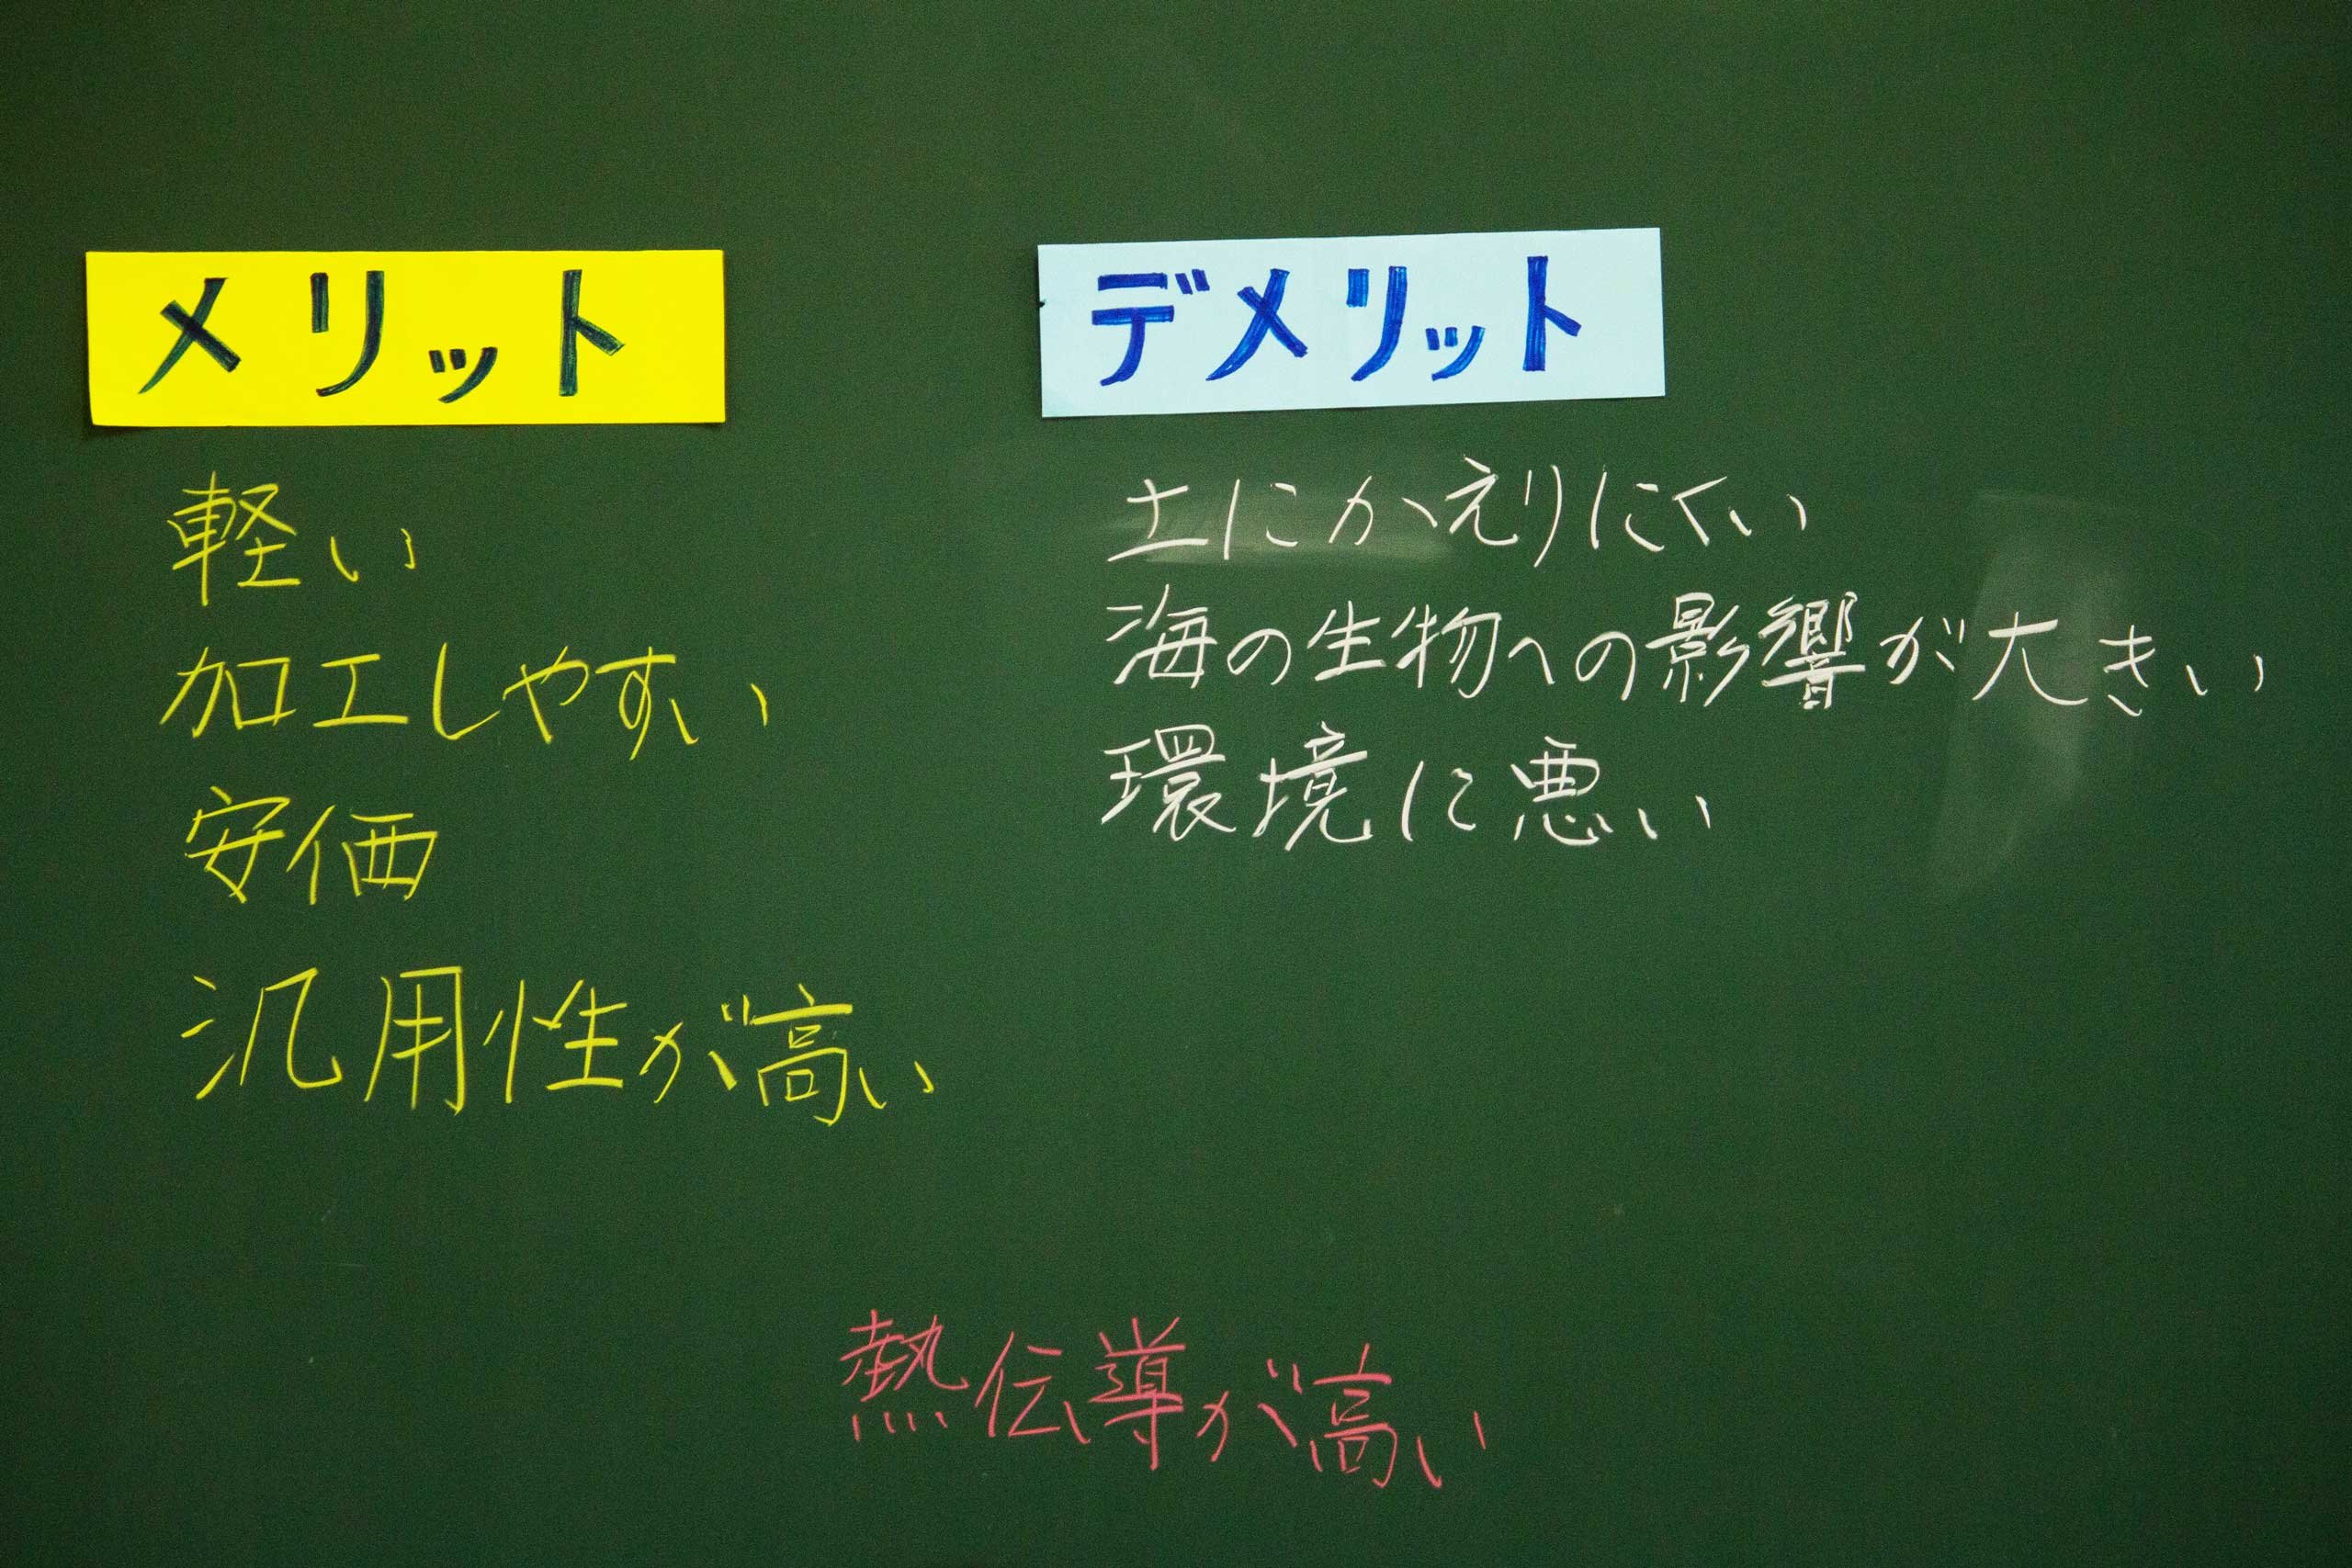 メリット
軽い
加工しやすい
安価
汎用性が高い
デメリット
土にかえりにくい
海の生物への影響が大きい
環境に悪い
熱伝導が高い